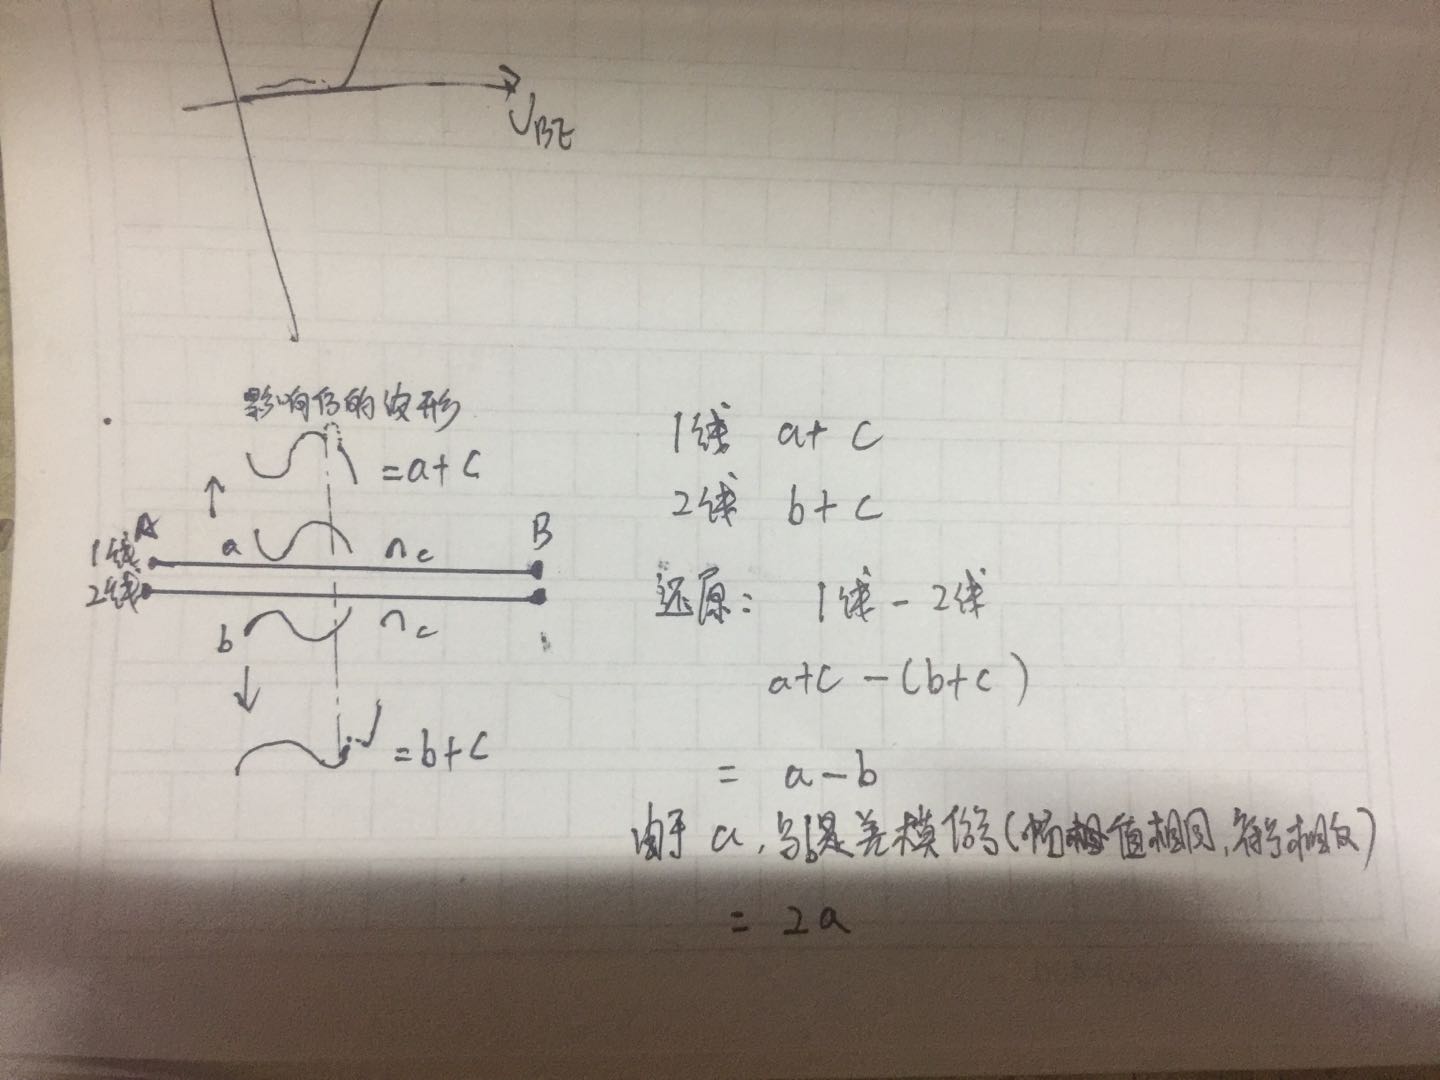 UBE
影响后的波形
= a + c
A
B
1线
a
c
2线
b
c
= b + c
1线 a + c
2线 b + c
还原: 1线 - 2线
a+c - (b+c)
= a - b
由于 a, 与b是差模信号(幅值相同,符号相反)
= 2a